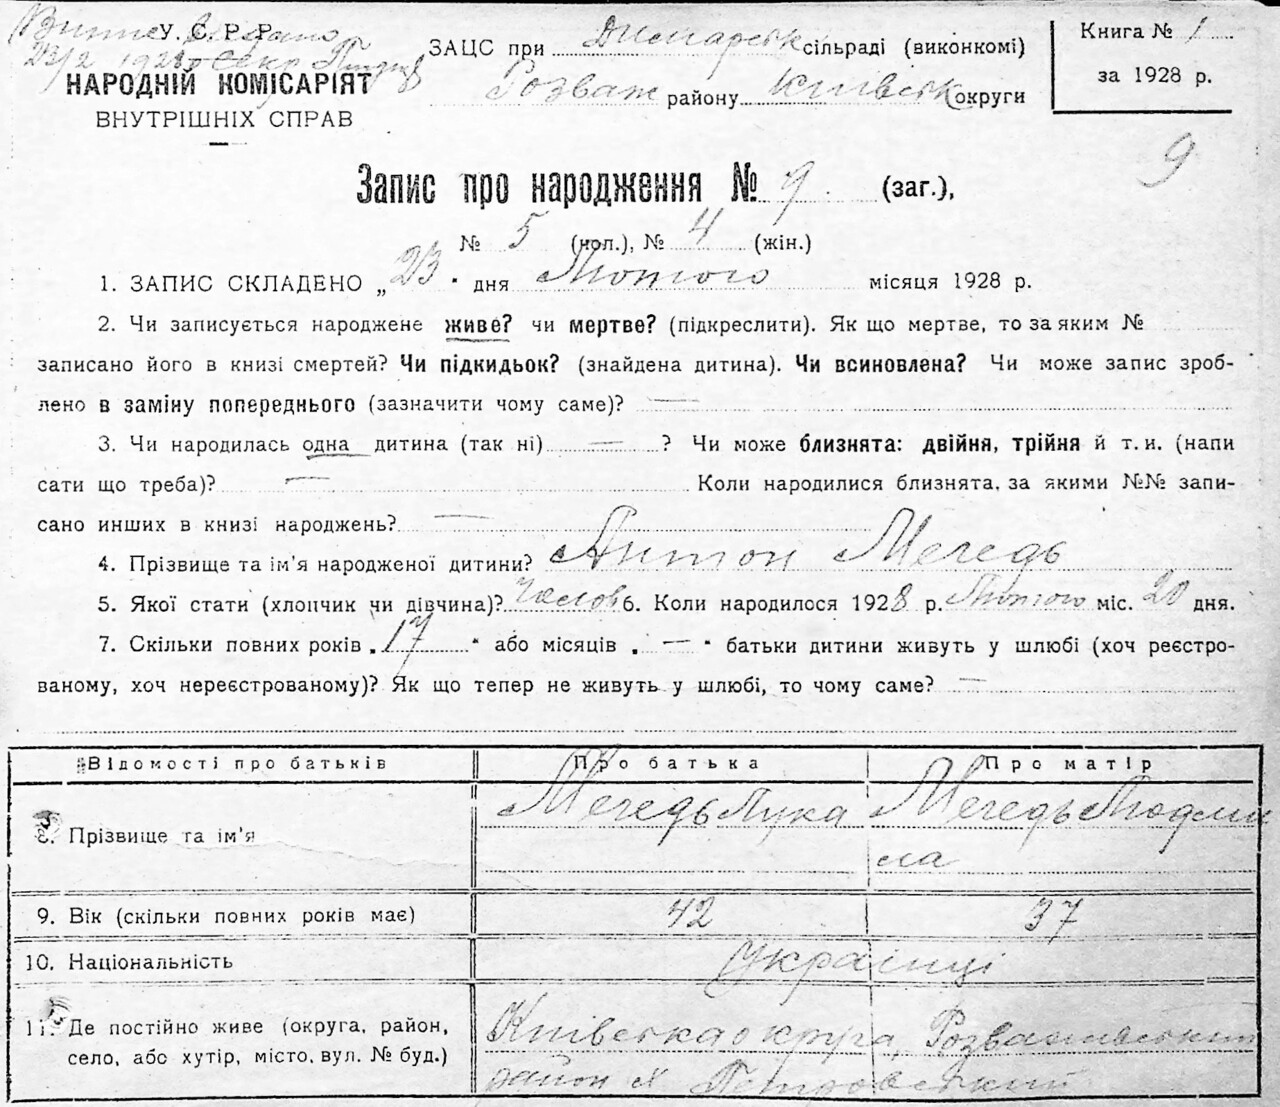 Випис видано
У. С. Р. Р.
23/2 1928 р Секр
НАРОДНІЙ КОМІСАРІЯТ
ВНУТРІШНІХ СПРАВ
ЗАЦС при Димарськ сільраді (виконкомі)
Розваж району Київськ округи
Книга № 1
за 1928 р.
9
Запис про народження № 9 (заг.),
№ 5 (чол.), № 4 (жін.)
1. ЗАПИС СКЛАДЕНО „ 23 " дня Лютого місяця 1928 р.
2. Чи записується народжене живе? чи мертве? (підкреслити). Як що мертве, то за яким №
записано його в книзі смертей? Чи підкидьок? (знайдена дитина). Чи всиновлена? Чи може запис зроб-
лено в заміну попереднього (зазначити чому саме)? —
3. Чи народилась одна дитина (так ні) — ? Чи може близнята: двійня, трійня й т. и. (напи
сати що треба)? — Коли народилися близнята, за якими №№ запи-
сано инших в книзі народжень? —
4. Прізвище та ім'я народженої дитини? Антон Мечедь
5. Якої стати (хлопчик чи дівчина)? Чолов 6. Коли народилося 1928 р. Лютого міс. 20 дня.
7. Скільки повних років „ 17 " або місяців „ — " батьки дитини живуть у шлюбі (хоч реєстро-
ваному, хоч нереєстрованому)? Як що тепер не живуть у шлюбі, то чому саме? —
Відомості про батьків Про батька Про матір
8. Прізвище та ім'я Мечедь Лука Мечедь Людми
ла
9. Вік (скільки повних років має) 42 37
10. Національність Українці
11. Де постійно живе (округа, район, Київська округа, Розважівський
село, або хутір, місто, вул. № буд.) район х Петровський